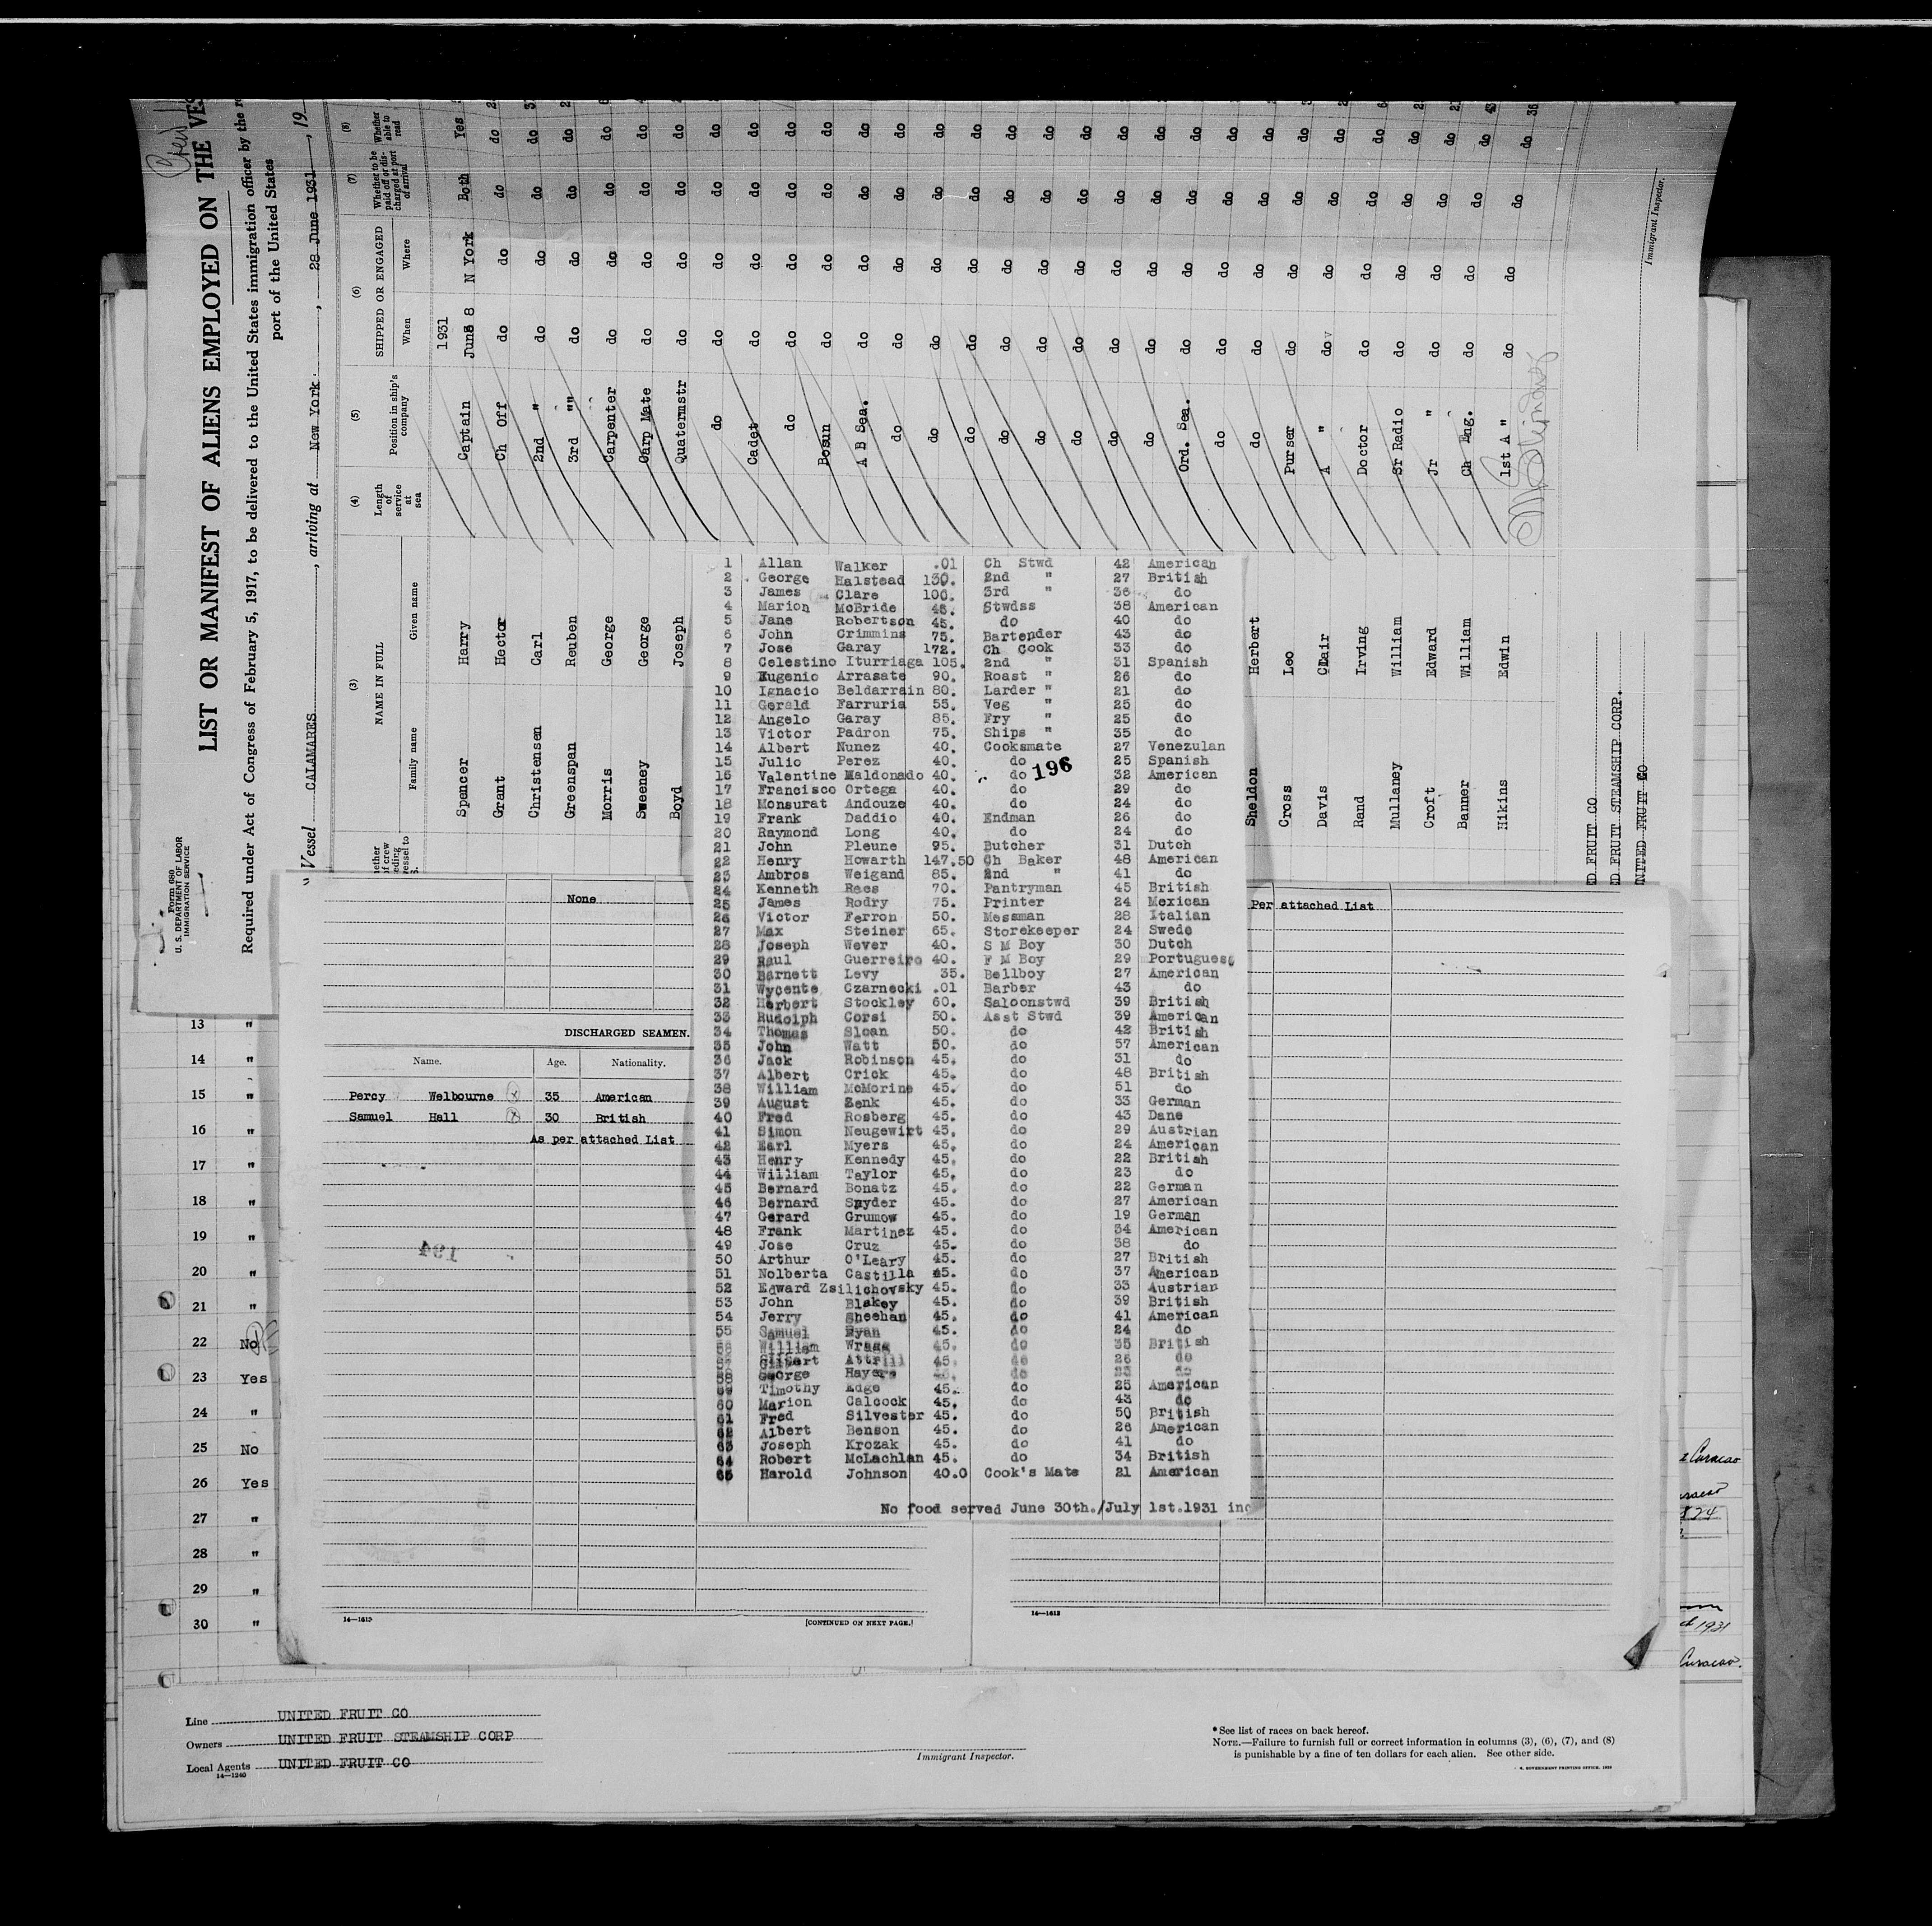 LIST OR MANIFEST OF ALIENS EMPLOYED ON THE VES
Required under Act of Congress of February 5, 1917, to be delivered to the United States immigration officer by the
port of the United States
Form 680
U. S. DEPARTMENT OF LABOR
IMMIGRATION SERVICE
Vessel CALAMARES, arriving at New York, 28 June 1931, 19
(3) (4) (5) (6) (7) (8)
NAME IN FULL Length of service at sea Position in ship's company SHIPPED OR ENGAGED Whether to be paid off or discharged at port of arrival Whether able to read
Family name Given name When Where
1931
Spencer Harry Captain June 8 N York Both Yes
Grant Hector Ch Off do do do do
Christensen Carl 2nd " do do do do
Greenspan Reuben 3rd "" do do do do
Morris George Carpenter do do do do
Sweeney George Carp Mate do do do do
Boyd Joseph Quatermstr do do do do
do do do do do
Cadet do do do do
do do do do do
Bosun do do do do
A B Sea. do do do do
do do do do do
do do do do do
do do do do do
do do do do do
do do do do do
do do do do do
do do do do do
do do do do do
Ord. Sea. do do do do
do do do do do
Sheldon Herbert do do do do do
Cross Leo Purser do do do do
Davis Clair A " do do do do
Rand Irving Doctor do do do do
Mullaney William Sr Radio do do do do
Croft Edward Jr " do do do do
Banner William Ch Eng. do do do do
Hikins Edwin 1st A " do do do do
D FRUIT CO
D FRUIT STEAMSHIP CORP.
NITED FRUIT CO
Immigrant Inspector.
1 Allan Walker .01 Ch Stwd 42 American
2 George Halstead 130. 2nd " 27 British
3 James Clare 100. 3rd " 36 do
4 Marion McBride 45. Stwdss 38 American
5 Jane Robertson 45. do 40 do
6 John Crimmins 75. Bartender 43 do
7 Jose Garay 172. Ch Cook 33 do
8 Celestino Iturriaga 105. 2nd " 31 Spanish
9 Eugenio Arrasate 90. Roast " 26 do
10 Ignacio Beldarrain 80. Larder " 21 do
11 Gerald Farruria 55. Veg " 25 do
12 Angelo Garay 85. Fry " 25 do
13 Victor Padron 75. Ships " 35 do
14 Albert Nunez 40. Cooksmate 27 Venezulan
15 Julio Perez 40. do 25 Spanish
196
16 Valentine Maldonado 40. do 32 American
17 Francisco Ortega 40. do 29 do
18 Monsurat Andouze 40. do 24 do
19 Frank Daddio 40. Endman 26 do
20 Raymond Long 40. do 24 do
21 John Pleune 95. Butcher 31 Dutch
22 Henry Howarth 147.50 Ch Baker 48 American
23 Ambros Weigand 85. 2nd " 41 do
24 Kenneth Rees 70. Pantryman 45 British
25 James Rodry 75. Printer 24 Mexican
26 Victor Ferron 50. Messman 28 Italian
27 Max Steiner 65. Storekeeper 24 Swede
28 Joseph Wever 40. S M Boy 30 Dutch
29 Raul Guerreiro 40. F M Boy 29 Portuguese
30 Barnett Levy 35. Bellboy 27 American
31 Wycente Czarnecki .01 Barber 43 do
32 Herbert Stockley 60. Saloonstwd 39 British
33 Rudolph Corsi 50. Asst Stwd 39 American
34 Thomas Sloan 50. do 42 British
35 John Watt 50. do 57 American
36 Jack Robinson 45. do 31 do
37 Albert Crick 45. do 48 British
38 William McMorine 45. do 51 do
39 August Zenk 45. do 33 German
40 Fred Rosberg 45. do 43 Dane
41 Simon Neugewirt 45. do 29 Austrian
42 Earl Myers 45. do 24 American
43 Henry Kennedy 45. do 22 British
44 William Taylor 45. do 23 do
45 Bernard Bonatz 45. do 22 German
46 Bernard Snyder 45. do 27 American
47 Gerard Grumow 45. do 19 German
48 Frank Martinez 45. do 34 American
49 Jose Cruz 45. do 38 do
50 Arthur O'Leary 45. do 27 British
51 Nolberta Castilla 45. do 37 American
52 Edward Zsilichovsky 45. do 33 Austrian
53 John Blakey 45. do 39 British
54 Jerry Sheehan 45. do 41 American
55 Samuel Ryan 45. do 24 do
56 William Wragg 45. do 35 British
57 Gilbert Attrill 45. do 26 do
58 George Hayers do do
59 Timothy Edge 45. do 25 American
60 Marion Calcock 45. do 43 do
61 Fred Silvester 45. do 50 British
62 Albert Benson 45. do 26 American
63 Joseph Krozak 45. do 41 do
64 Robert McLachlan 45. do 34 British
65 Harold Johnson 40.0 Cook's Mate 21 American
No food served June 30th./July 1st.1931 inc
None
Per attached List
DISCHARGED SEAMEN.
Name. Age. Nationality.
Percy Welbourne 35 American
Samuel Hall 30 British
As per attached List
194
14—1613
[CONTINUED ON NEXT PAGE.]
14—1613
13 "
14 "
15 "
16 "
17 "
18 "
19 "
20 "
21 "
22 No
23 Yes
24 "
25 No
26 Yes
27 "
28 "
29 "
30 "
Curacao
1931
Curacao.
Line UNITED FRUIT CO
Owners UNITED FRUIT STEAMSHIP CORP
Local Agents UNITED FRUIT CO
14—1240
Immigrant Inspector.
*See list of races on back hereof.
NOTE.—Failure to furnish full or correct information in columns (3), (6), (7), and (8)
is punishable by a fine of ten dollars for each alien. See other side.